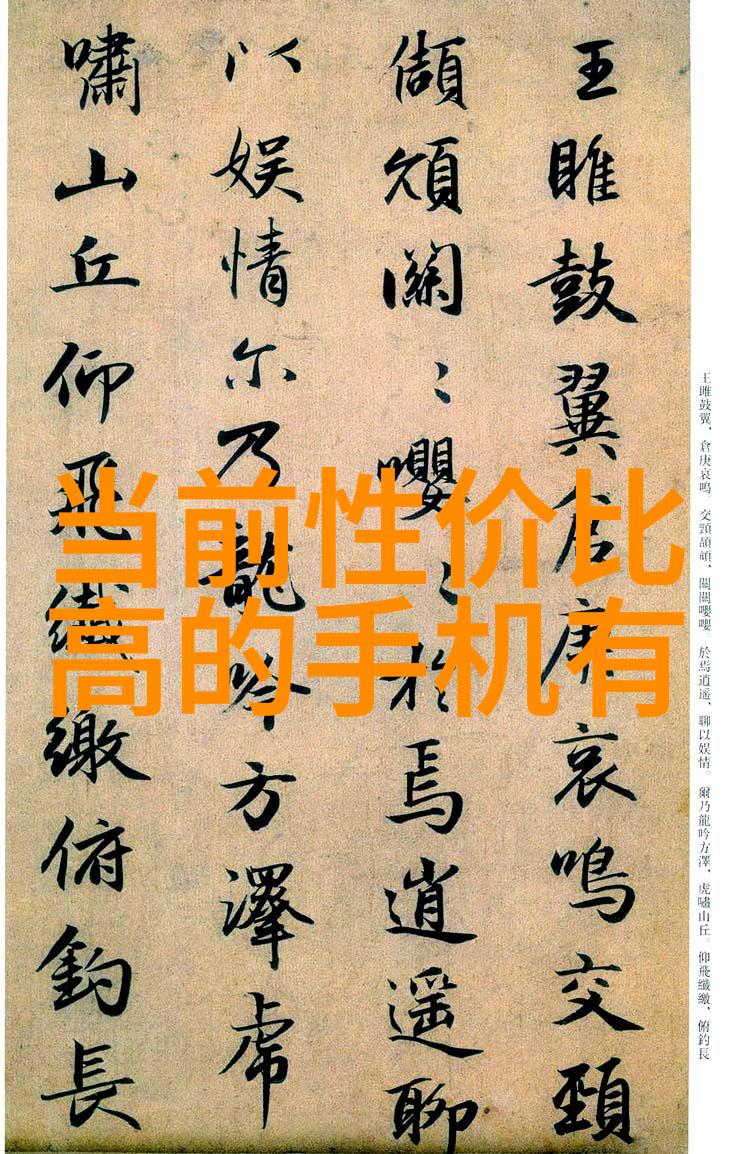 王雎鼓翼，倉庚哀鳴。交頸頡頏，關關嚶嚶。於焉逍遥，聊以娱情。爾乃龍吟方澤，虎嘯山丘。仰飛纖繳，俯釣長
王雎鼓翼倉庚哀鳴交頸
頡頏關〻嚶〻於焉逍遥聊
以娱情尔乃龍吟方澤虎
嘯山丘仰飛纖繳俯釣長
当前性价比
高的手机有